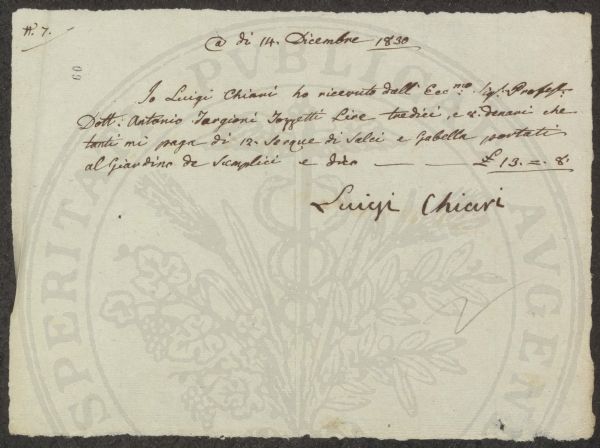 N.° 7.
@ di 14. Dicembre 1830
60
Io Luigi Chiari ho ricevuto dall' Ecc.mo Sig.r Profess.r
Dott. Antonio Targioni Tozzetti Lire tredici, e 8. denari che
tanti mi paga di 12. Serque di Salci e Gabella portati
al Giardino de Semplici e dico — — £ 13. = 8.
Luigi Chiari
PUBLICA
SPERITA
AUGEN